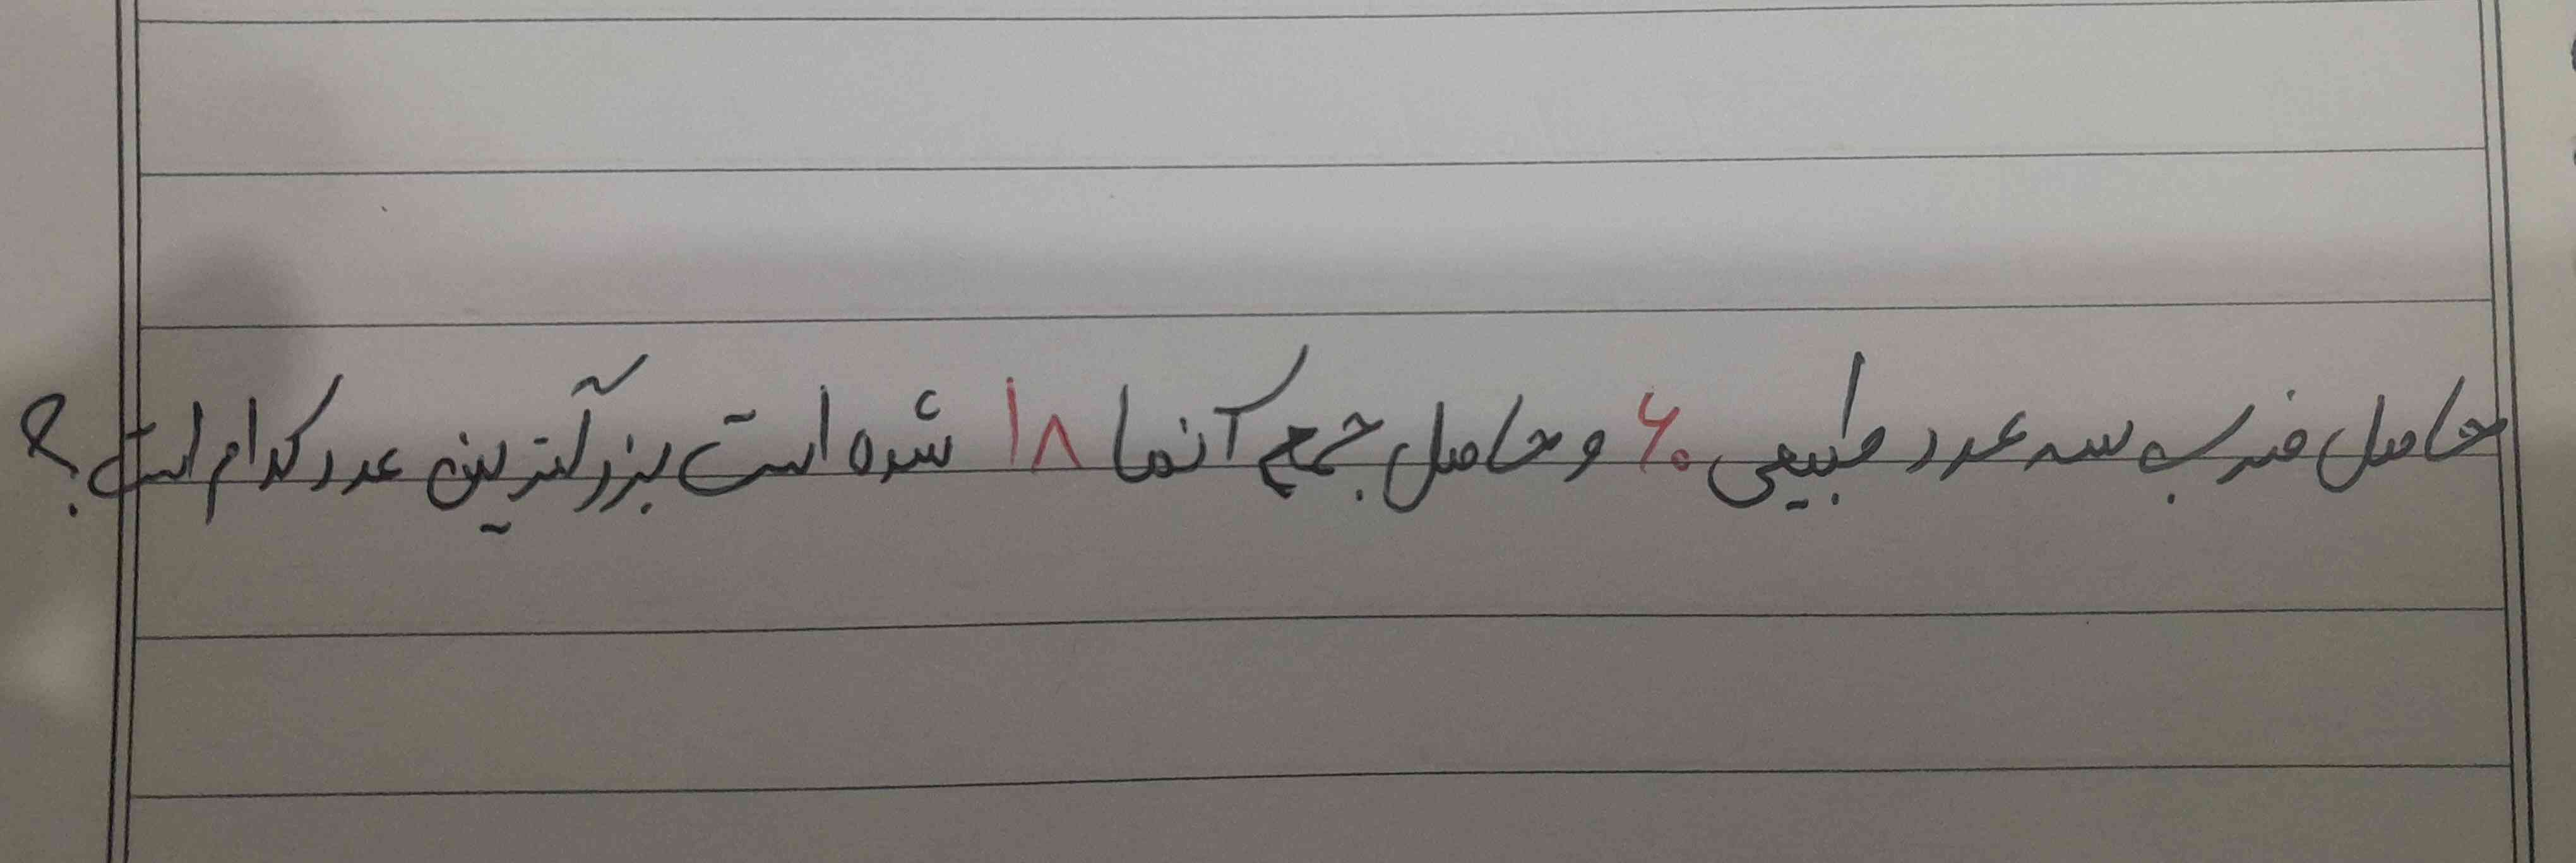 حاصل ضرب سه عدد طبیعی ۶۰ و حاصل جمع آنها ۱۸ شده است بزرگترین عدد کدام است؟